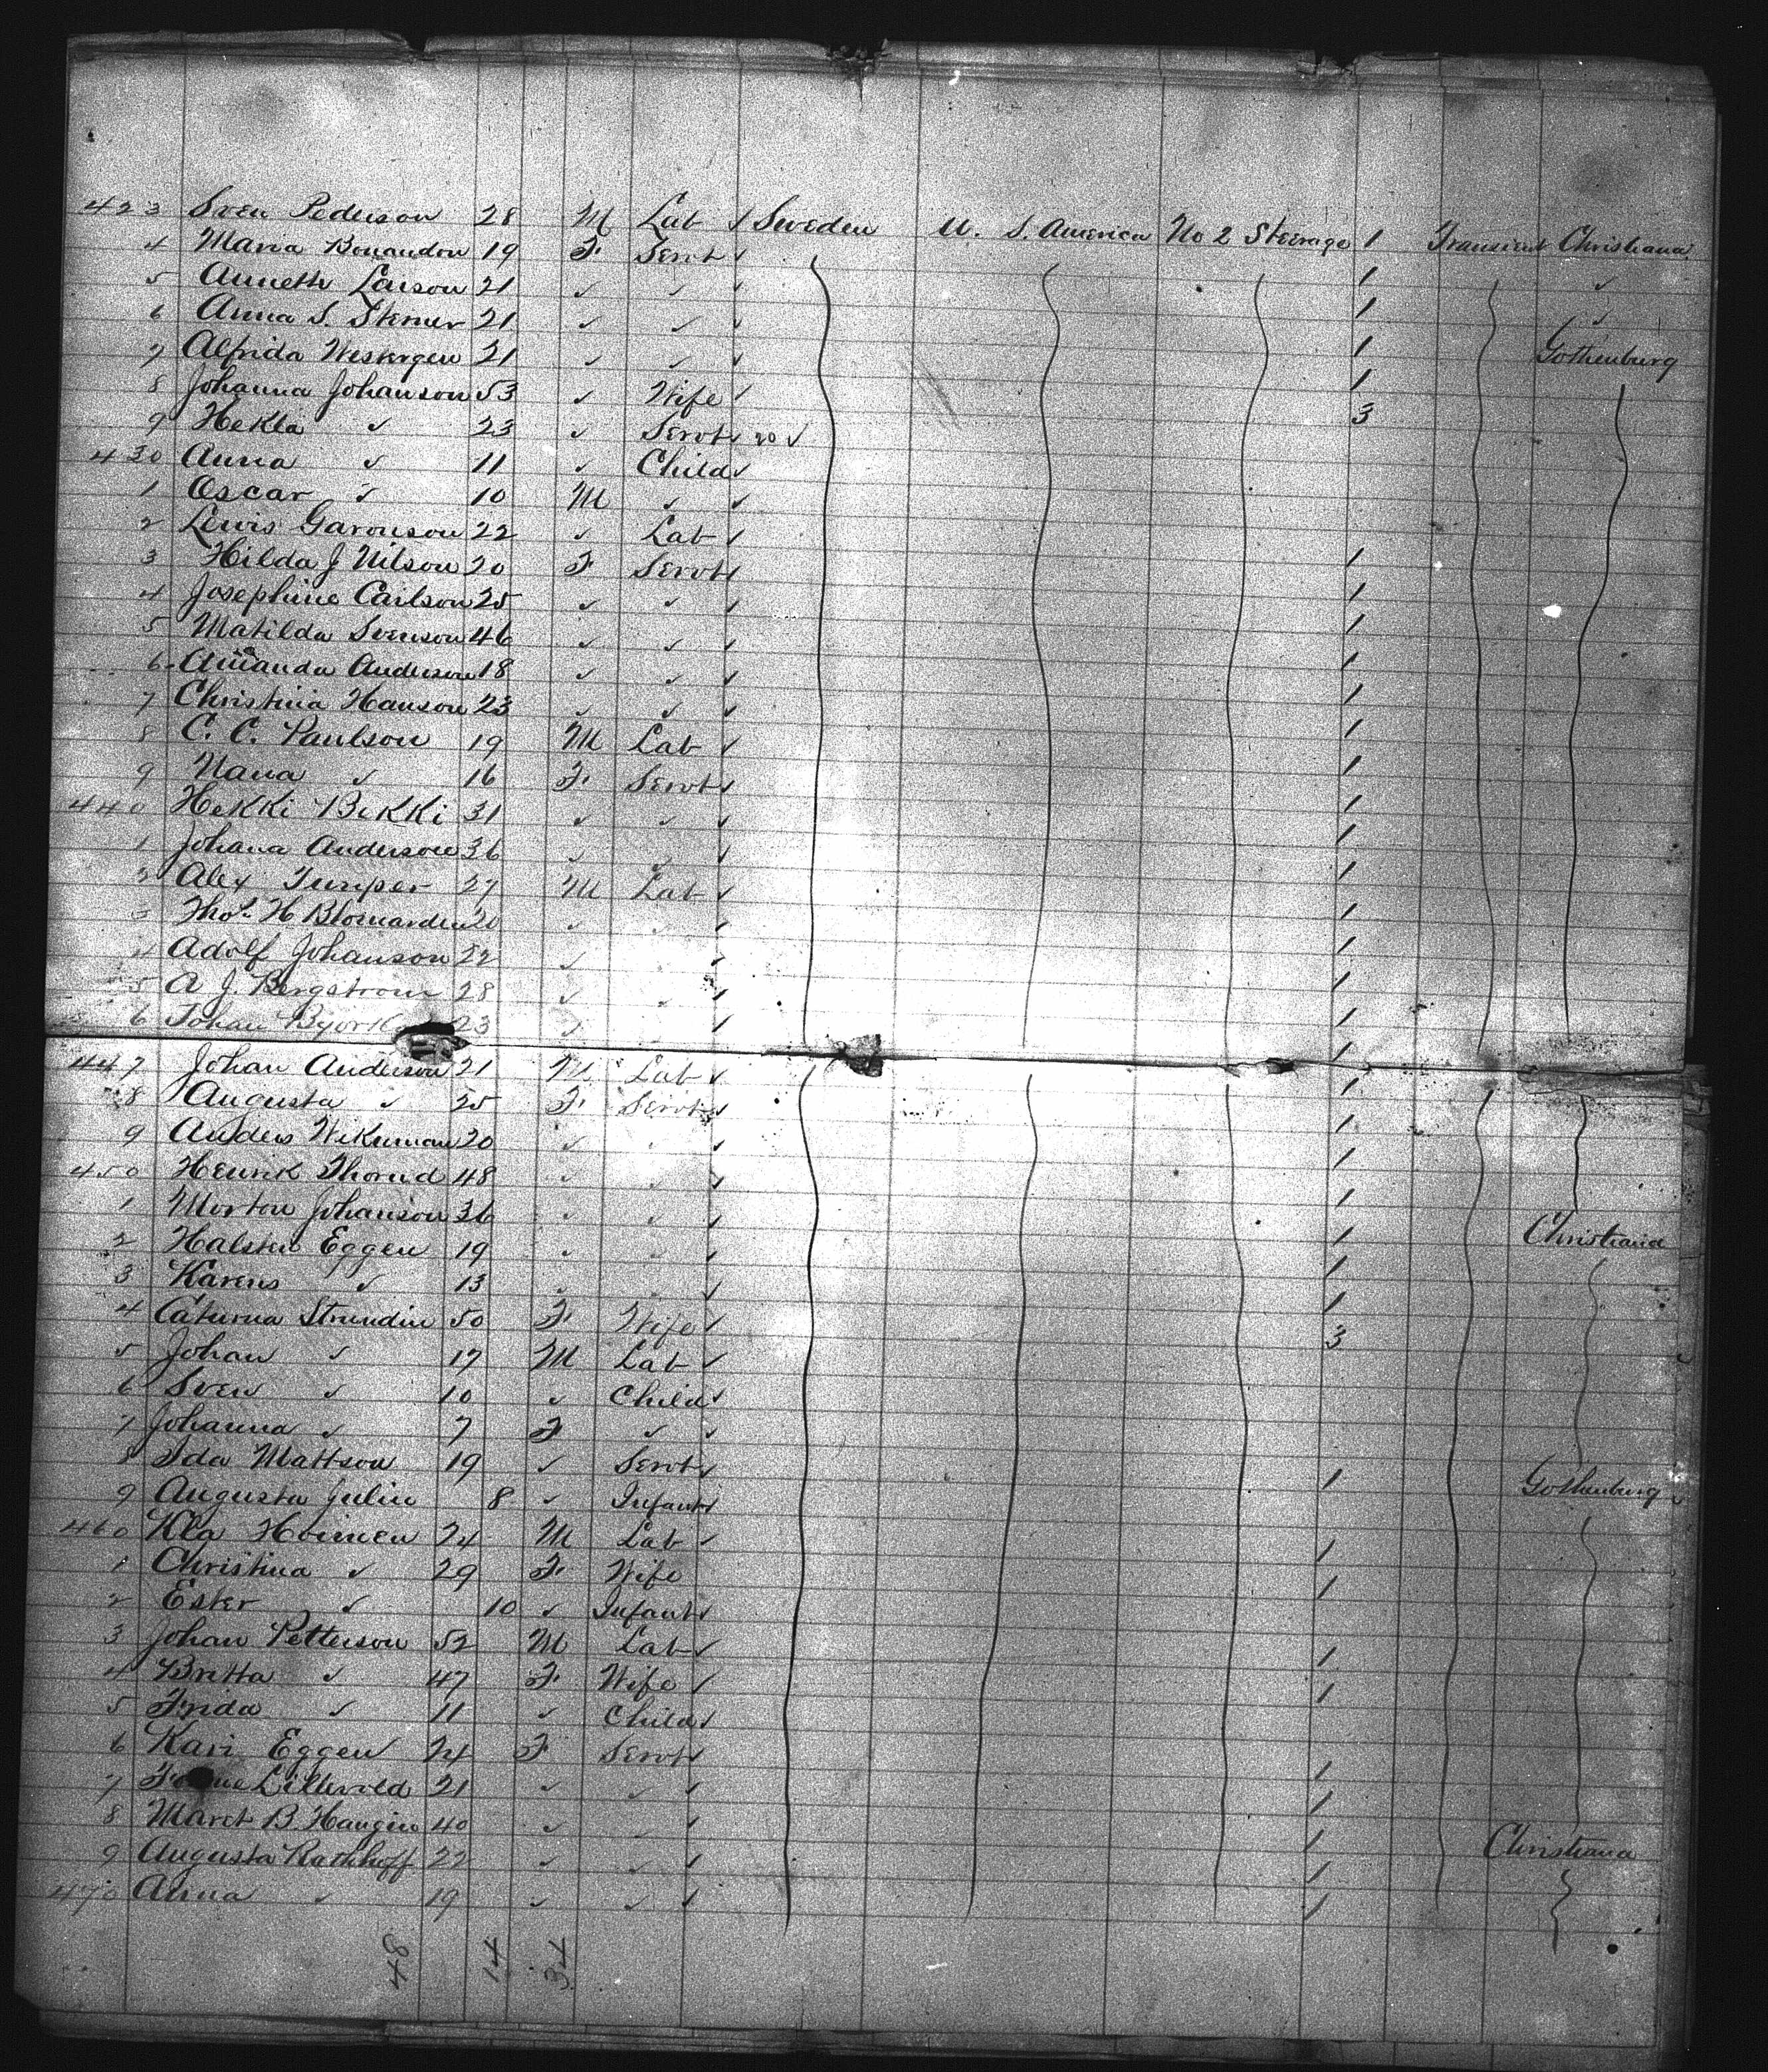 423 Sven Pederson 28 M Lab ✓ Sweden U. S. America No 2 Steerage 1 Transient Christiana
4 Maria 19 F. Servt ✓ 1 ✓
5 Anneth Larson 21 ✓ ✓ ✓ 1 ✓
6 Anna S. Sterner 21 ✓ ✓ ✓ 1 Gothenburg
7 Alfrida Westergen 21 ✓ ✓ ✓ 1
8 Johanna Johanson 53 ✓ Wife ✓ 3
9 Hekla ✓ 23 ✓ Servt ✓ 20 ✓
430 Anna ✓ 11 ✓ Child ✓
1 Oscar ✓ 10 M ✓ ✓
2 Lewis Garonson 22 ✓ Lab ✓ 1
3 Hilda J Nilson 20 F Servt ✓ 1
4 Josephine Carlson 25 ✓ ✓ ✓ 1
5 Matilda Svenson 46 ✓ ✓ ✓ 1
6 Amanda Anderson 18 ✓ ✓ ✓ 1
7 Christina Hanson 23 ✓ ✓ ✓ 1
8 C. C. Paulson 19 M Lab ✓ 1
9 Nana ✓ 16 F. Servt ✓ 1
440 Hekki Bikki 31 ✓ ✓ ✓ 1
1 Johana Anderson 36 ✓ ✓ ✓ 1
2 Alex Juniper 27 M Lab ✓ 1
3 Thos. H 20 ✓ ✓ ✓ 1
4 Adolf Johanson 22 ✓ ✓ ✓ 1
5 A J. Bergstrom 28 ✓ ✓ ✓ 1
6 Johan 23 ✓ ✓ 1
447 Johan Anderson 21 M Lab ✓ 1
8 Augusta ✓ 25 F. Servt ✓ 1
9 Anders Wikman 20 ✓ ✓ ✓ 1
450 Henrik Thorud 48 ✓ ✓ ✓ 1
1 Morton Johanson 36 ✓ ✓ ✓ 1 Christiana
2 Halsten Eggen 19 ✓ ✓ ✓ 1
3 Karens ✓ 13 ✓ 1
4 Caturna Strundin 50 F. Wife ✓ 3
5 Johan ✓ 17 M Lab ✓
6 Sven ✓ 10 ✓ Child ✓
7 Johanna ✓ 7 F ✓ ✓
8 Ida Mattson 19 ✓ Servt ✓ 1 Gothenburg
9 Augusta Julin 8 ✓ Infant ✓
460 Kla Hoimen 24 M Lab ✓ 1
1 Christina ✓ 29 F. Wife 1
2 Ester ✓ 10 ✓ Infant ✓
3 Johan Petterson 52 M Lab ✓ 1
4 Britta ✓ 47 F. Wife ✓ 1
5 Frida ✓ 11 ✓ Child ✓
6 Kari Eggen 24 F Servt ✓ 1
7 21 ✓ ✓ ✓ 1
8 Maret B. Haugin 40 ✓ ✓ ✓ 1 Christiana
9 Augusta Rathhoff 22 ✓ ✓ ✓ 1
470 Anna ✓ 19 ✓ ✓ ✓ 1
48 14 34